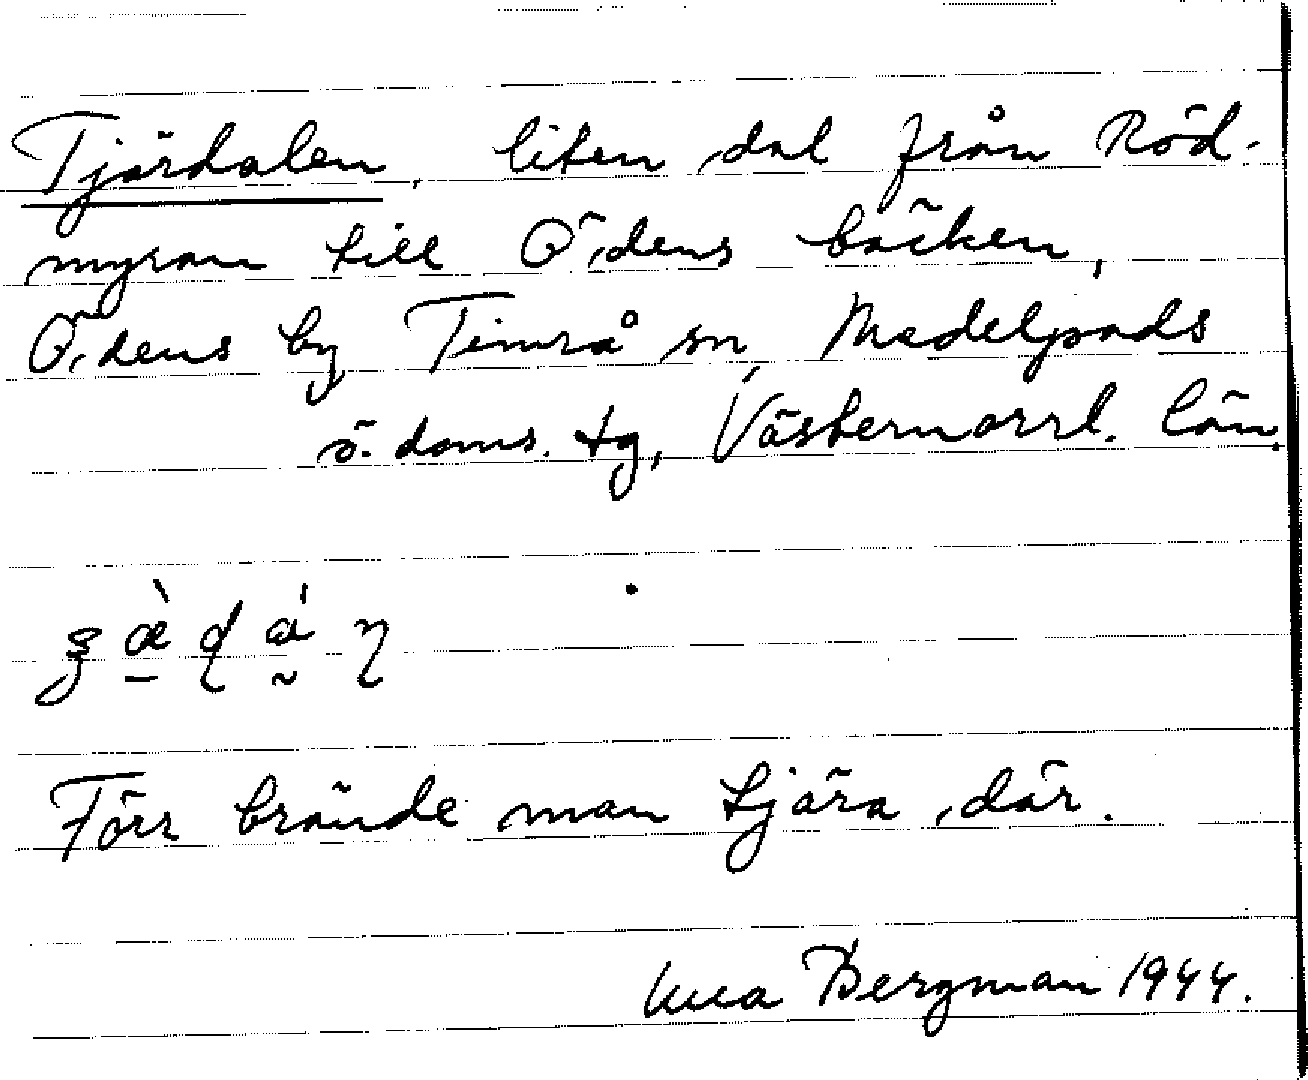 Tjärdalen, liten dal från Röd-
myran till Ö,dens bäcken,
Ö,dens by Timrå sn, Medelpads
ö. doms. tg, Västernorrl. län.
Förr brände man tjära där.
Bergman 1944.